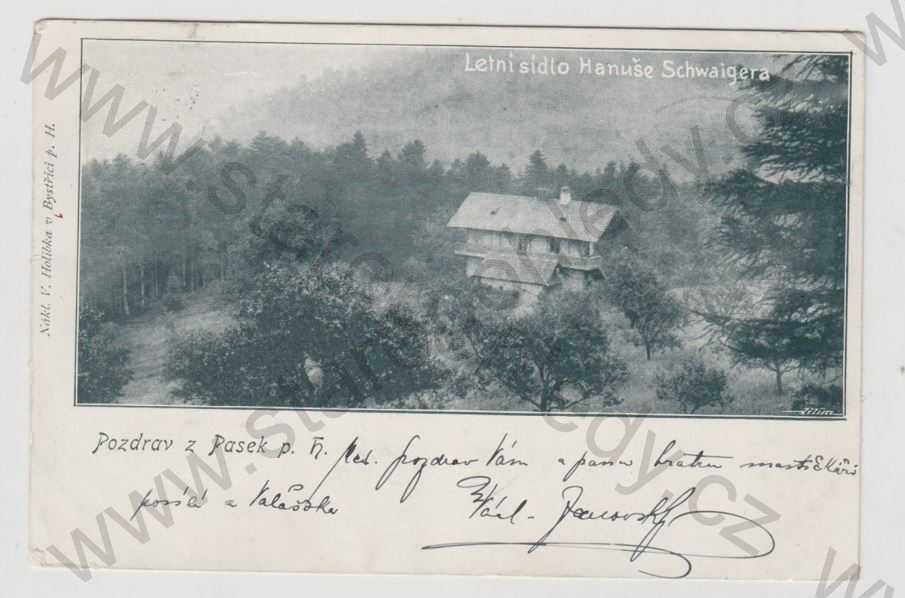 Letni sídlo Hanuše Schwaigera
Nákl. V. Holibka v Bystřici p. H.
Pozdrav z Pasek p. H.
pozdrav Vám a panu bratru
posílá z Valašska
Václ. Janovský
www.stare-pohledy.cz